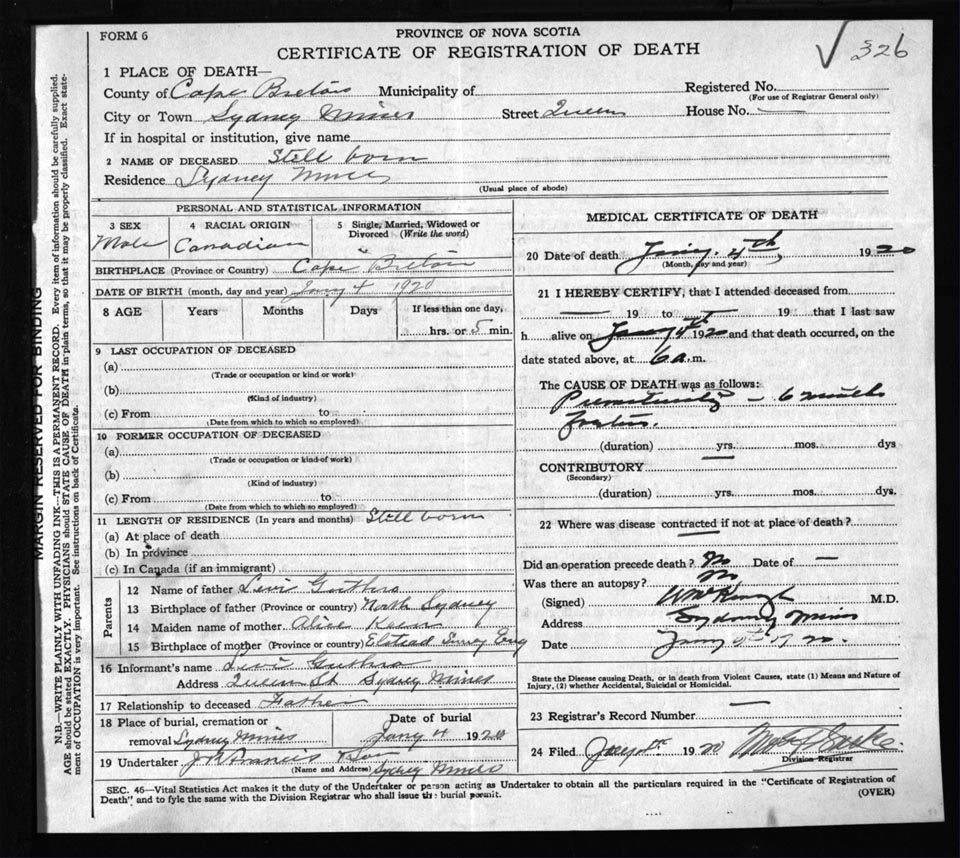 FORM 6
PROVINCE OF NOVA SCOTIA
CERTIFICATE OF REGISTRATION OF DEATH
√ 326
1 PLACE OF DEATH—
County of Cape Breton Municipality of Registered No.
(For use of Registrar General only)
City or Town Sydney Mines Street Queen House No. —
If in hospital or institution, give name
2 NAME OF DECEASED Still born
Residence Sydney Mines
(Usual place of abode)
PERSONAL AND STATISTICAL INFORMATION
3 SEX 4 RACIAL ORIGIN 5 Single, Married, Widowed or Divorced (Write the word)
Male Canadian
BIRTHPLACE (Province or Country) Cape Breton
DATE OF BIRTH (month, day and year) Jany 4 1920
8 AGE Years Months Days If less than one day,
hrs. or 5 min.
9 LAST OCCUPATION OF DECEASED
(a)
(Trade or occupation or kind or work)
(b)
(Kind of industry)
(c) From to
(Date from which to which so employed)
10 FORMER OCCUPATION OF DECEASED
(a)
(Trade or occupation or kind of work)
(b)
(Kind of industry)
(c) From to
(Date from which to which so employed)
11 LENGTH OF RESIDENCE (In years and months) Still born
(a) At place of death
(b) In province
(c) In Canada (if an immigrant)
Parents
12 Name of father Levi Guthro
13 Birthplace of father (Province or country) North Sydney
14 Maiden name of mother Alice
15 Birthplace of mother (Province or country) Elstead Surrey Eng
16 Informant's name Levi Guthro
Address Queen St Sydney Mines
17 Relationship to deceased Father
18 Place of burial, cremation or Date of burial
removal Sydney Mines Jany 4 1920
19 Undertaker
(Name and Address) Sydney Mines
MEDICAL CERTIFICATE OF DEATH
20 Date of death Jany. 4th 1920
(Month, day and year)
21 I HEREBY CERTIFY, that I attended deceased from
— 19 to 19 that I last saw
h alive on Jany 4th 1920 and that death occurred, on the
date stated above, at 6 a.m.
The CAUSE OF DEATH was as follows:
Prematurity – 6 months
foetus.
(duration) yrs. mos. dys
CONTRIBUTORY
(Secondary)
(duration) yrs. mos. dys.
22 Where was disease contracted if not at place of death?
Did an operation precede death? No Date of —
Was there an autopsy? No
(Signed) M.D.
Address Sydney Mines
Date Jany
State the Disease causing Death, or in death from Violent Causes, state (1) Means and Nature of
Injury, (2) whether Accidental, Suicidal or Homicidal.
23 Registrar's Record Number —
24 Filed 1920
Division Registrar
SEC. 46—Vital Statistics Act makes it the duty of the Undertaker or person acting as Undertaker to obtain all the particulars required in the "Certificate of Registration of
Death" and to fyle the same with the Division Registrar who shall issue the burial permit.
(OVER)
MARGIN RESERVED FOR BINDING
N.B.—WRITE PLAINLY WITH UNFADING INK—THIS IS A PERMANENT RECORD. Every item of information should be carefully supplied.
AGE should be stated EXACTLY. PHYSICIANS should STATE CAUSE OF DEATH in plain terms, so that it may be properly classified. Exact state-
ment of OCCUPATION is very important. See instructions on back of Certificate.